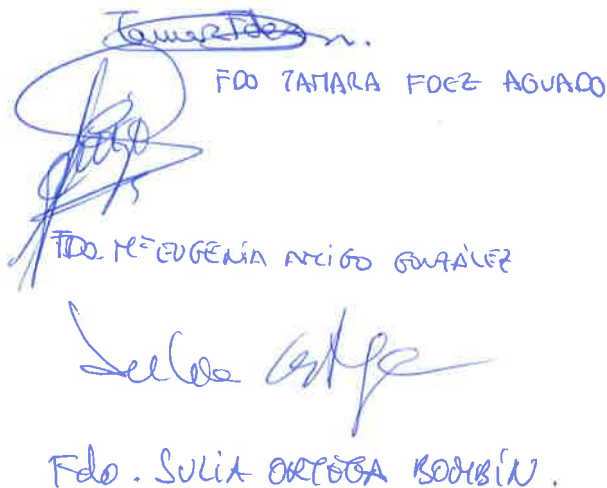 Tamara Fdez
FDO TAMARA FDEZ AGUADO
FDO. Mª EUGENIA AMIGO GONZÁLEZ
FdO. JULIA ORTEGA BOMBÍN.